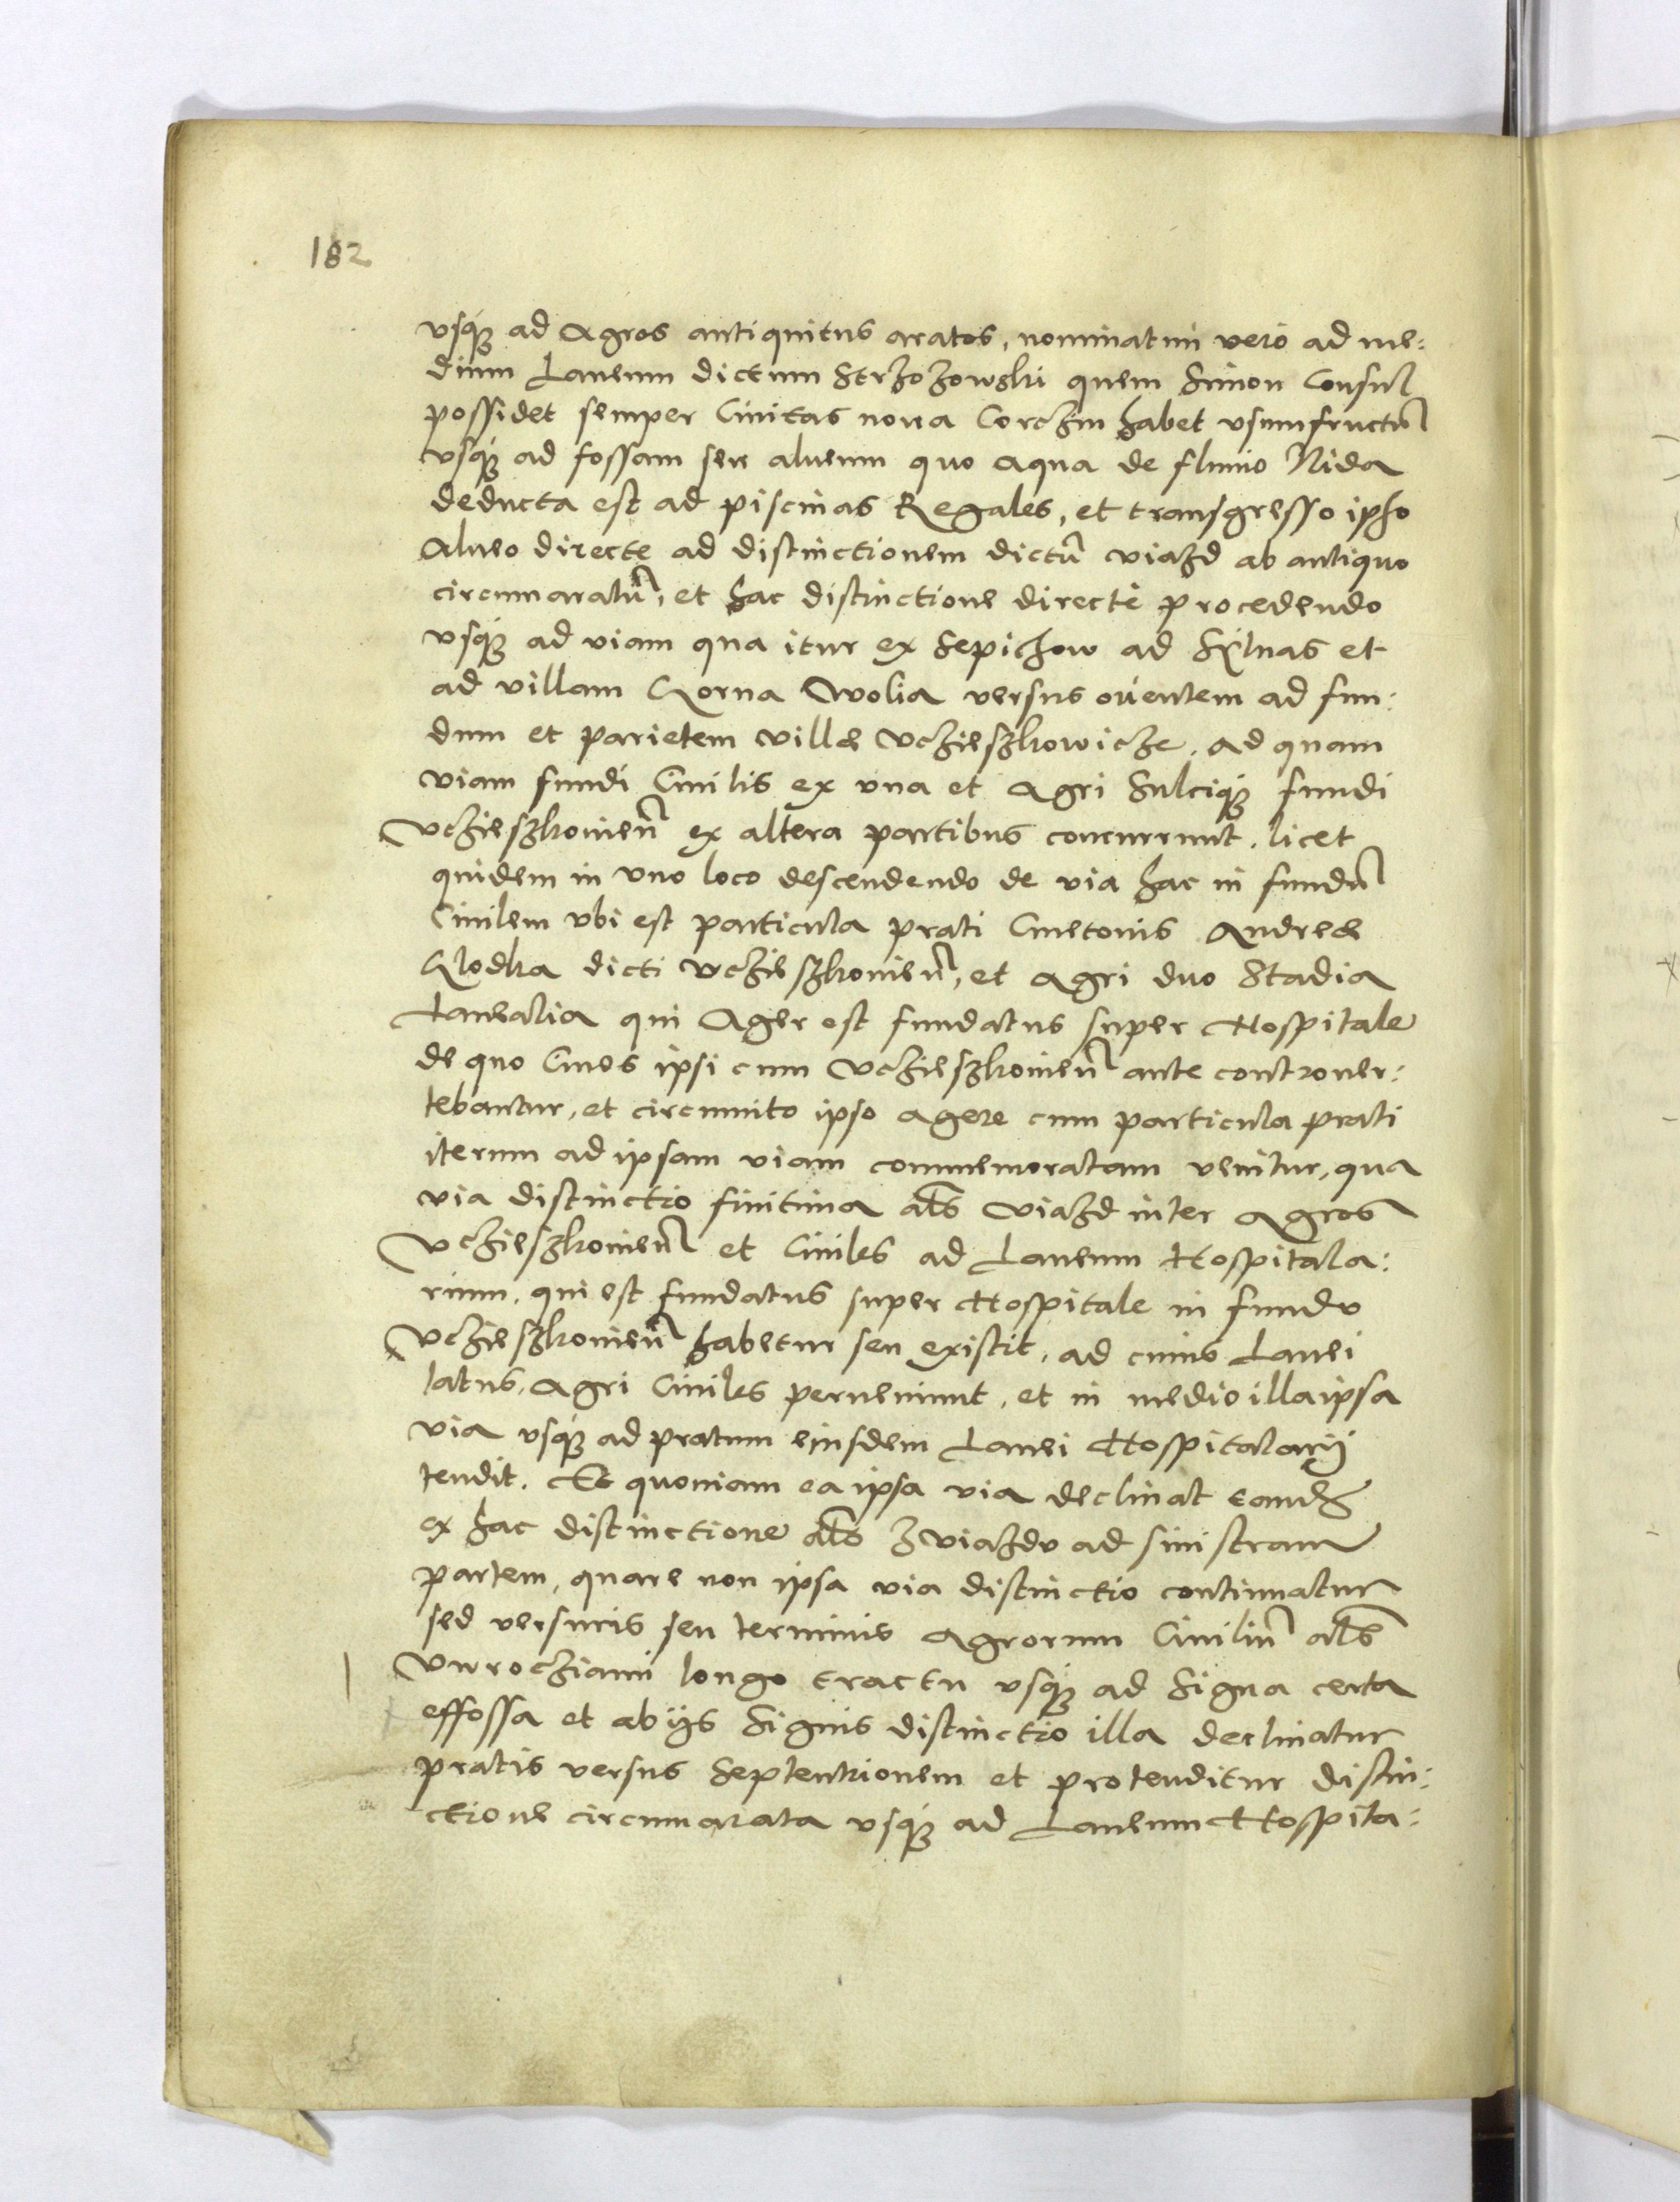 182
vsq3 ad Agros antiquitus aratos, nominatim vero ad me:
dium Laneum dictum Strzozowski quem Simon Consul
possidet semper Ciuitas noua Corczin habet vsumfructū
vsq3 ad fossam seu alueum quo aqua de fluuio Nida
deducta est ad piscinas Regales, et transgresso ipso
Alueo directe ad distinctionem dictū viazd ab antiquo
circumaratū, et hac distinctione directe procedendo
vsq3 ad viam qua itur ex Sepichow ad Syluas et
ad villam Gorna Wolia versus orientem ad fun:
dum et parietem villæ Vczieszkowicze. Ad quam
viam fundi Ciuilis ex vna et Agri Sulciq3 fundi
Vczieszkouien̄ ex altera partibus concurrunt, licet
quidem in vno loco descendendo de via hac in fundū
Ciuilem vbi est particula prati Cmetonis Andreæ
Klodka dicti Vczieszkouien̄, et Agri duo Stadia
Lanealia qui Ager est fundatus super Hospitale
de quo Ciues ipsi cum Vczieszkouien̄ ante controuer:
tebantur, et circumito ipso agere cum particula prati
iterum ad ipsam viam commemoratam venitur, qua
via distinctio finitima als viazd inter Agros
Vczieszkouien̄ et Ciuiles ad Laneum Hospitala:
rium, qui est fundatus super Hospitale in fundo
Vczieszkouien̄ habetur seu existit, ad cuius Lanei
latus, Agri Ciuiles perueniunt, et in medio illa ipsa
via vsq3 ad pratum eiusdem Lanei Hospitalarij
tendit. Et quoniam ea ipsa via declinat eand
ex hac distinctione als zviazdu ad sinistram
partem, quare non ipsa via distinctio continuatur
sed versuris seu terminis Agrorum Ciuiliū als
Vwroeziami longo tractu vsq3 ad Signa certa
effossa et ab ijs Signis distinctio illa declinatur
pratis versus Septentrionem et protenditur distin:
ctione circumarata vsq3 ad Laneum Hospita: